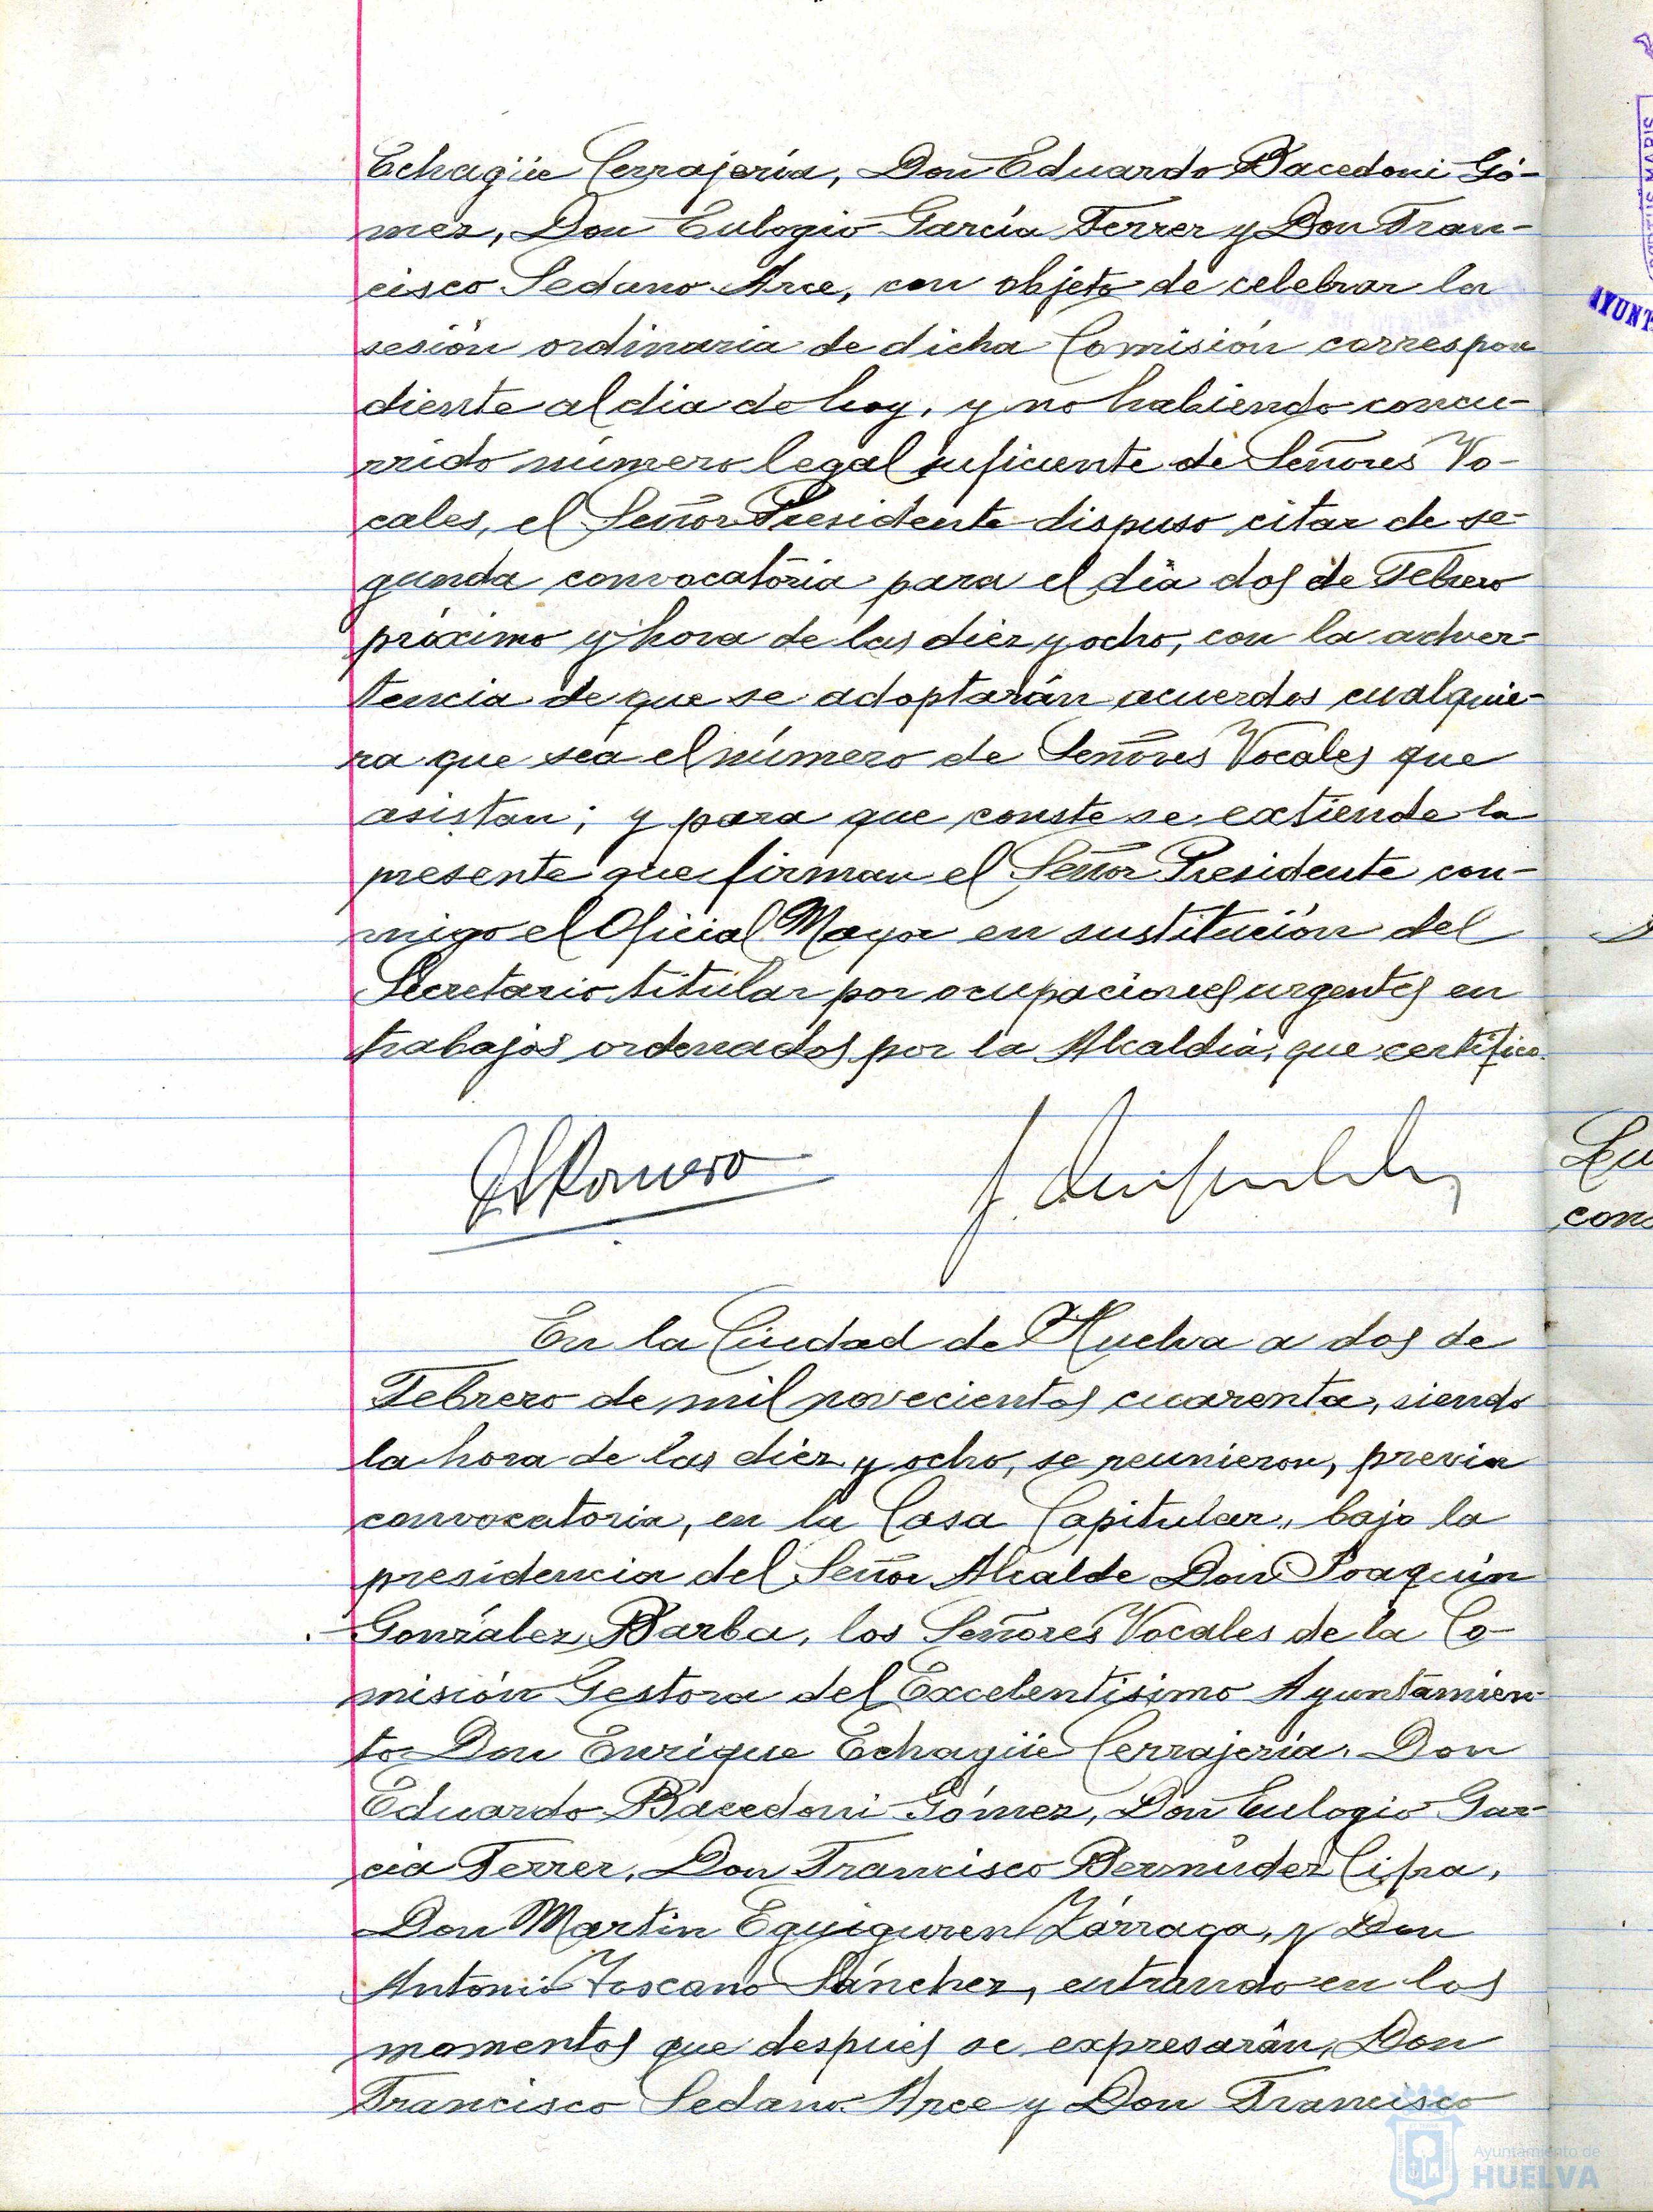 Echagüe Cerrajería, Don Eduardo Bacedoni Gó-
mez, Don Eulogio García Ferrer y Don Fran-
cisco Sedano Arce, con objeto de celebrar la
sesión ordinaria de dicha Comisión correspon
diente al dia de hoy, y no habiendo concu-
rrido número legal suficiente de Señores Vo-
cales, el Señor Presidente dispuso citar de se-
gunda convocatoria para el dia dos de Febrero
próximo y hora de las diez y ocho, con la adver-
tencia de que se adoptarán acuerdos cualquie-
ra que sea el número de Señores Vocales que
asistan; y para que conste se extiende la
presente que firman el Señor Presidente con-
migo el Oficial Mayor en sustitución del
Secretario titular por ocupaciones urgentes en
trabajos ordenados por la Alcaldia, que certifico.
Romero
En la Ciudad de Huelva a dos de
Febrero de mil novecientos cuarenta, siendo
la hora de las diez y ocho, se reunieron, previa
convocatoria, en la Casa Capitular, bajo la
presidencia del Señor Alcalde Don Joaquín
González Barba, los Señores Vocales de la Co-
misión Gestora del Excelentísimo Ayuntamien-
to Don Enrique Echagüe Cerrajería, Don
Eduardo Bacedoni Gómez, Don Eulogio Gar-
cia Ferrer, Don Francisco Bermúdez Cifra,
Don Martin Eguiguren Zárraga, y Don
Antonio Toscano Sánchez, entrando en los
momentos que después se expresarán, Don
Francisco Sedano Arce y Don Francisco
Ayuntamiento de
HUELVA